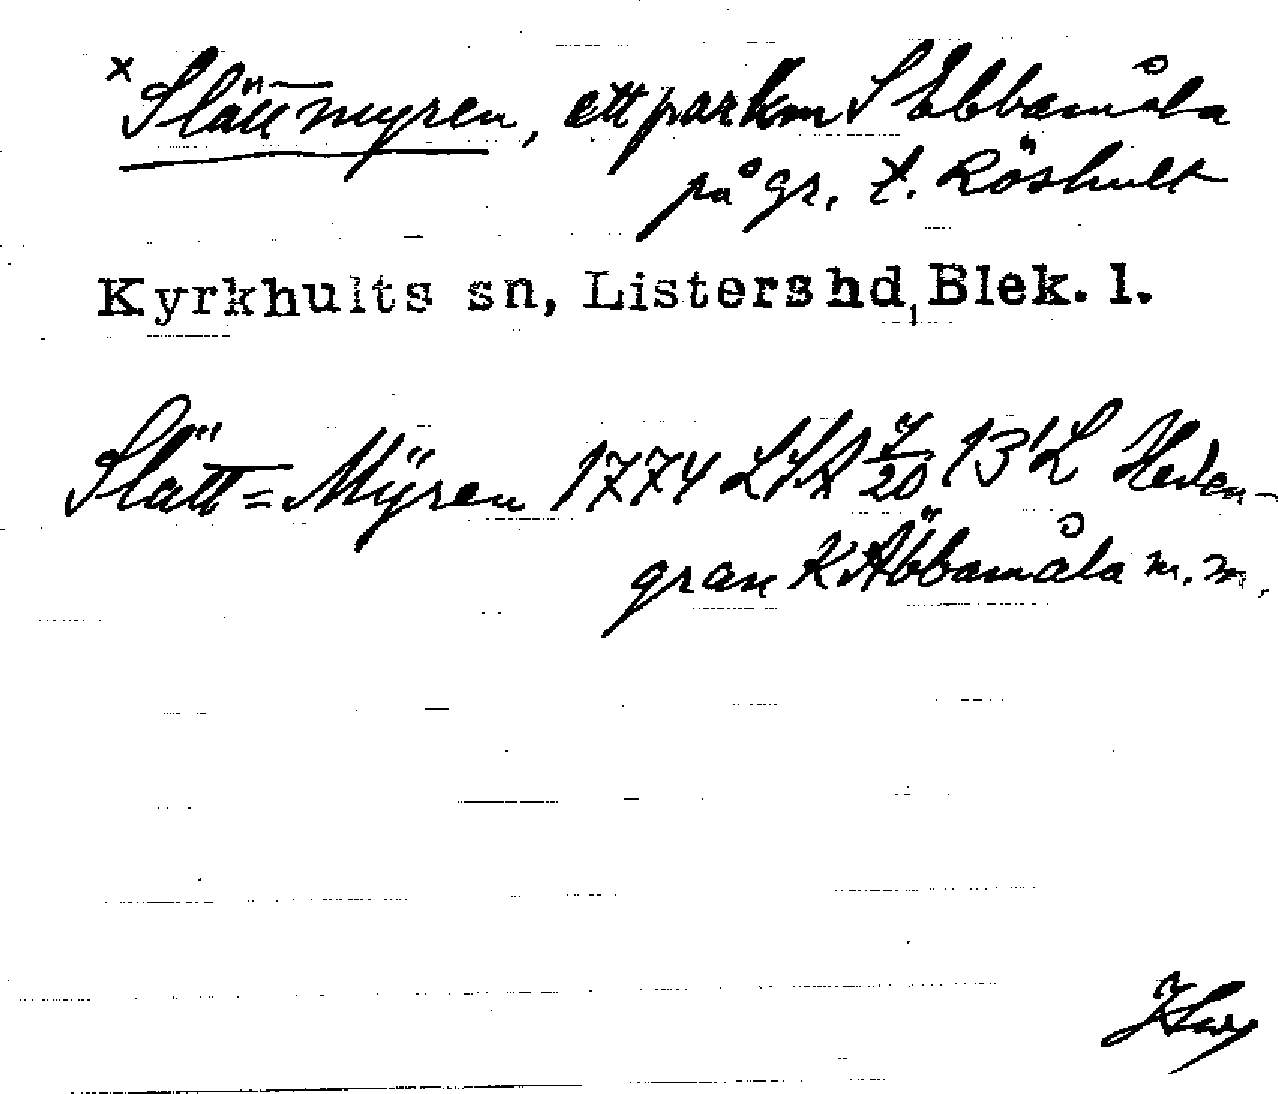 x Slättmyren, ett par km S Ebbamåla
på gr. t. Röshult
Kyrkhults sn, Listers hd, Blek. l.
Slätt=Mÿren 1774 LSA 7/20 13'L Heden-
gran K Äbbamåla m.m.